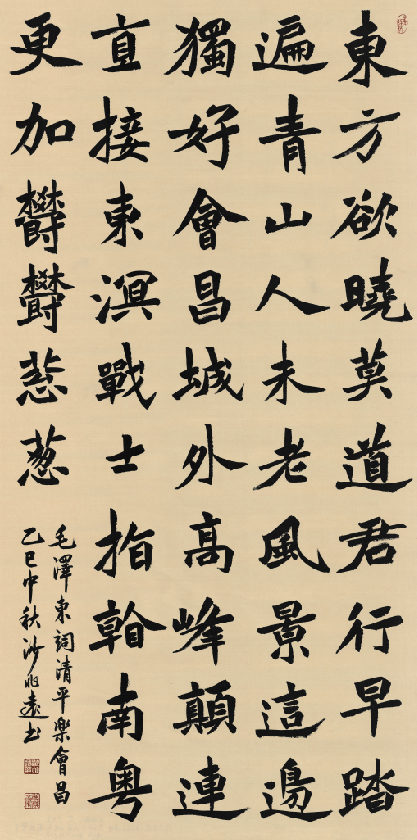 東方欲曉莫道君行早踏
遍青山人未老風景這邊
獨好會昌城外高峰顛連
直接東溟戰士指看南粵
更加鬱鬱葱葱
毛澤東詞清平樂會昌
乙巳中秋沙兆遠書